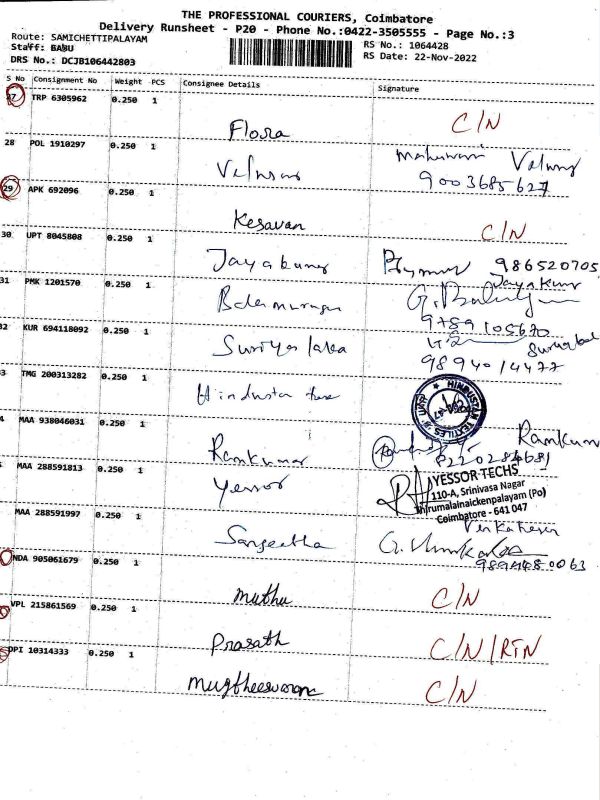 THE PROFESSIONAL COURIERS, Coimbatore
Delivery Runsheet - P20 - Phone No.:0422-3505555 - Page No.:3
Route: SAMICHETTIPALAYAM
RS No.: 1064428
Staff: BABU
RS Date: 22-Nov-2022
DRS No.: DCJB106442803
S No Consignment No Weight PCS Consignee Details Signature
27 TRP 6305962 0.250 1
Flora C/N
28 POL 1910297 0.250 1
9003685627
29 APK 692096 0.250 1
Kesavan C/N
30 UPT 8045808 0.250 1
Jayakumar 986520705
Jayakumar
31 PMK 1201570 0.250 1
Balamurugan
9789105670
32 KUR 694118092 0.250 1
Suriya laka
9894014477
33 TMG 200313282 0.250 1
Hindusta
HINDUSTAM TEXTILES
MAA 938046031 0.250 1
Ramkumar Ramkumar
8220284681
MAA 288591813 0.250 1
Yessor
YESSOR TECHS
110-A, Srinivasa Nagar
Thirumalainaickenpalayam (Po)
Coimbatore - 641 047
MAA 288591997 0.250 1
Sangeetha
Venkatesan
NDA 905061679 0.250 1
Muthu C/N
VPL 215861569 0.250 1
Prasath C/N/RTN
DPI 10314333 0.250 1
C/N